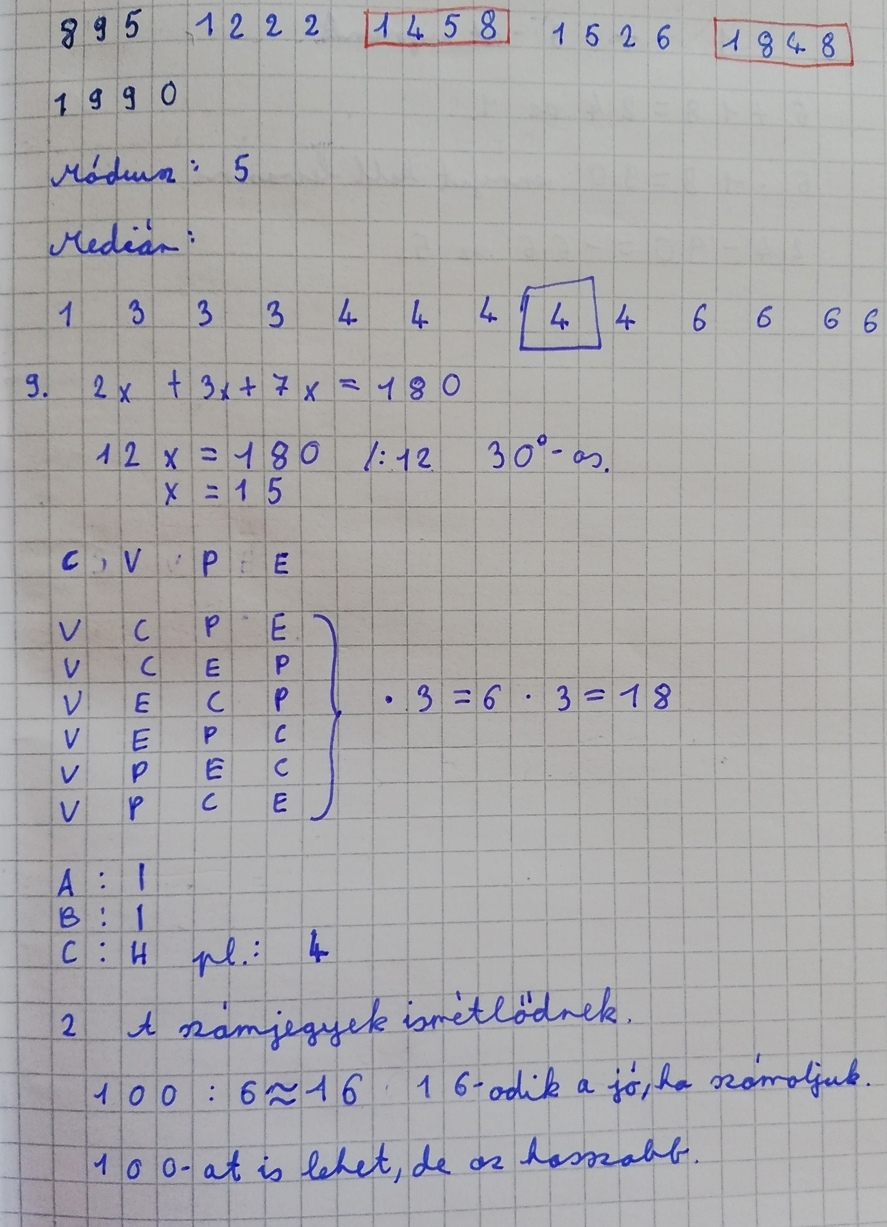 895 1222 1458 1526 1848
1990
Módusz: 5
Medián:
1 3 3 3 4 4 4 4 4 6 6 6 6
9. 2x + 3x + 7x = 180
12x = 180 /:12 30°-os.
x = 15
C, V, P, E
V C P E
V C E P
V E C P · 3 = 6 · 3 = 18
V E P C
V P E C
V P C E
A: I
B: I
C: H pl.: 4
2 A számjegyek ismétlődnek.
100 : 6 ≈ 16 16-odik a jó, ha számoljuk.
100-at is lehet, de az hosszabb.